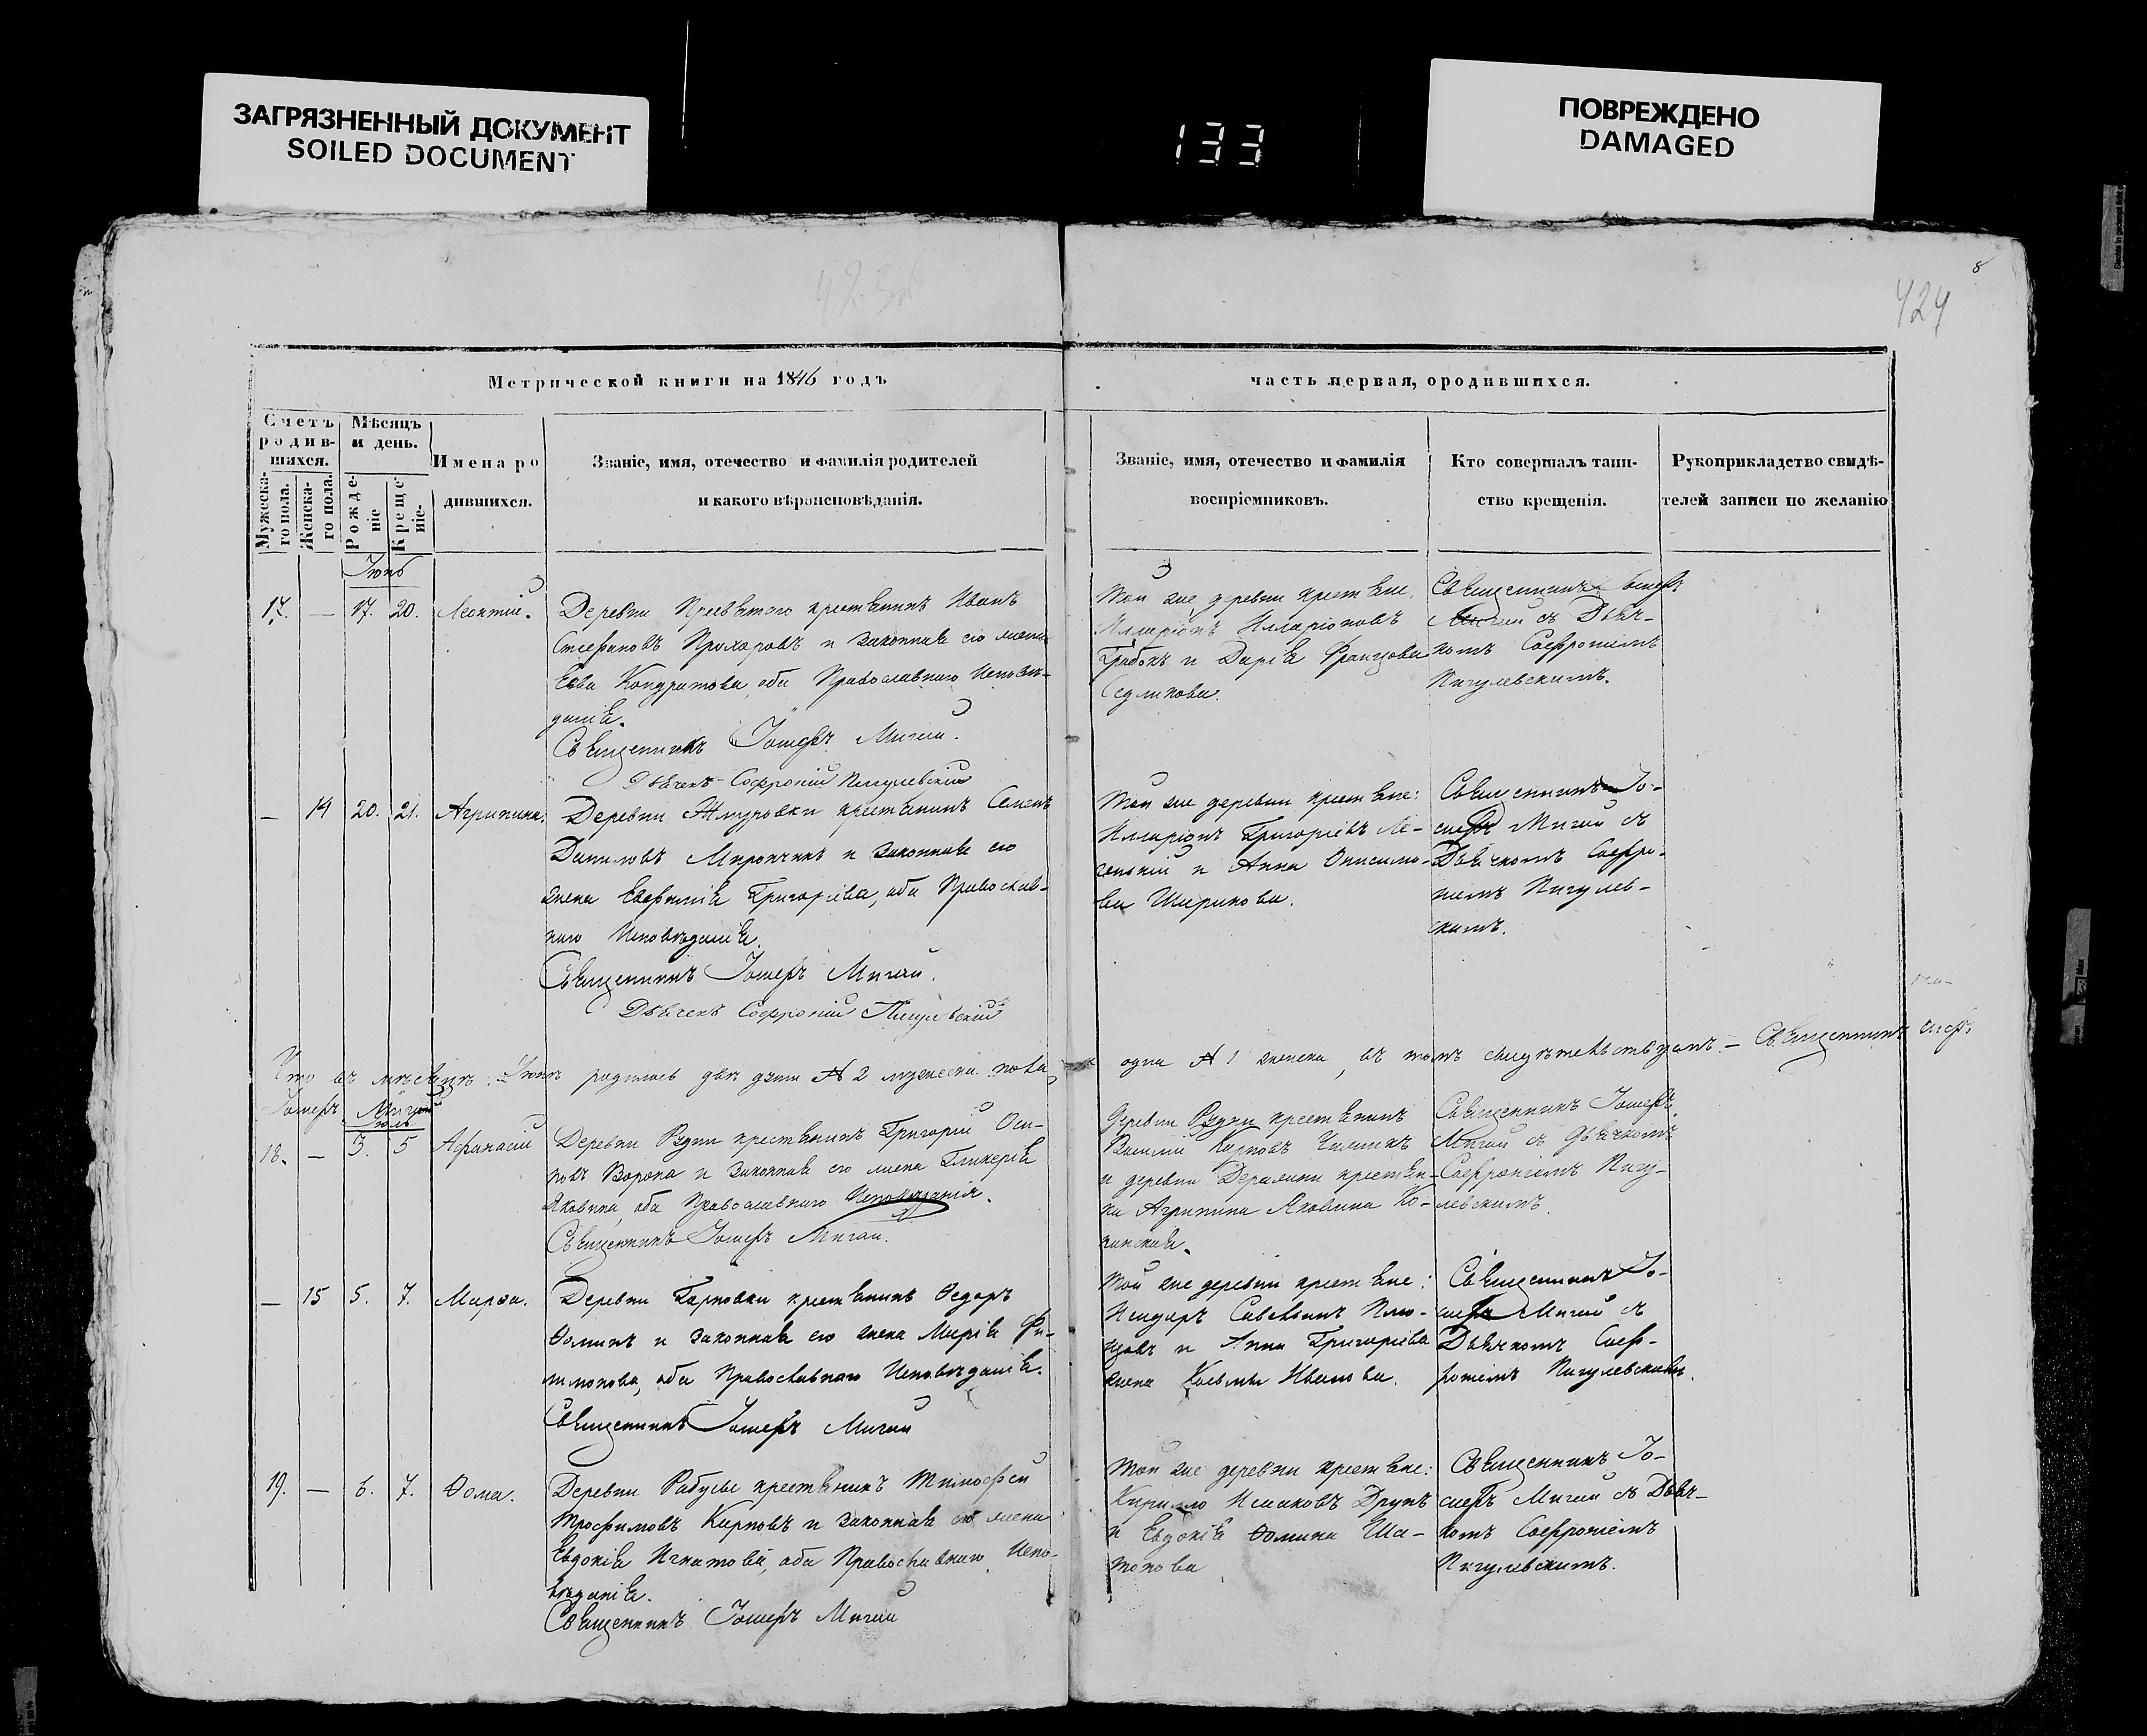 ЗАГРЯЗНЕННЫЙ ДОКУМЕНТ
SOILED DOCUMENT
133
ПОВРЕЖДЕНО
DAMAGED
8
424
Метрической книги на 1846 годъ
часть первая, о родившихся.
Счетъ родив-шихся.
Мужеска-го пола.
Женска-го пола.
Мѣсяцъ и день.
Рожде-ніе
Креще-ніе.
Имена ро
дившихся.
Званіе, имя, отечество и фамилія родителей
и какого вѣроисповѣданія.
Званіе, имя, отечество и фамилія
воспріемниковъ.
Кто совершалъ таин-
ство крещенія.
Рукоприкладство свидѣ-
телей записи по желанію
Іюнь
17. — 17. 20. Леонтій. Деревни крестьянинъ Иванъ
Стефановъ Прохоровъ и законная его жена
Ева Кондратова, оба Православнаго Исповѣ-
данія.
Священникъ Іосифъ Мигай.
Дьячекъ Софроній Пигулевскій
Той же деревни крестьяне,
Илларіонъ Илларіоновъ
Грабокъ и Дарія Францова
Седликова.
Священникъ Іосифъ
Мигай съ Дьяч-
комъ Софроніемъ
Пигулевскимъ.
— 14 20. 21. Агрипина. Деревни Жмуровки крестьянинъ Семенъ
Даниловъ Мирончикъ и законная его
жена Евфимія Григоріева, оба Православ-
наго Исповѣданія.
Священникъ Іосифъ Мигай.
Дьячекъ Софроній Пигулевскій
Той же деревни крестьяне:
Илларіонъ Григоріевъ
и Анна Онисимо-
ва Ширинова.
Священникъ Іо-
сифъ Мигай съ
Дьячкомъ Софро-
ніемъ Пигулев-
скимъ.
Что въ мѣсяцѣ Іюнѣ родилось два дѣти 2 мужеска пола одна 1 женска, въ томъ свидѣтельствуемъ. — Священникъ
Іосифъ Мигай
Іюль
18. — 3. 5 Афанасій Деревни Рудни крестьянинъ Григорій Оси-
повъ Ворона и законная его жена Гликерія
Яковлева, оба Православнаго Исповѣданія.
Священникъ Іосифъ Мигай.
Деревни Рудни крестьянинъ
Василій Карповъ
и деревни крестьян-
ка Агрипина Яковлева Ко-
Священникъ Іосифъ
Мигай съ Дьячкомъ
Софроніемъ Пигу-
левскимъ.
— 15 5. 7. Марѳа. Деревни Карповки крестьянинъ Ѳедоръ
Ѳоминъ и законная его жена Марія Фи-
липонова, оба Православнаго Исповѣданія.
Священникъ Іосифъ Мигай
Той же деревни крестьяне:
и Анна Григоріева
жена Косьмы Иванова.
Священникъ Іо-
сифъ Мигай съ
Дьячкомъ Соф-
роніемъ Пигулевскимъ.
19. — 6. 7. Ѳома. Деревни крестьянинъ Тимофей
Трофимовъ Карповъ и законная его жена
Евдокія Игнатова, оба Православнаго Испо-
вѣданія.
Священникъ Іосифъ Мигай
Той же деревни крестьяне:
Кирилло Исаковъ Друкъ
и Евдокія Ѳомина Ша-
понова
Священникъ Іо-
сифъ Мигай съ Дьяч-
комъ Софроніемъ
Пигулевскимъ.